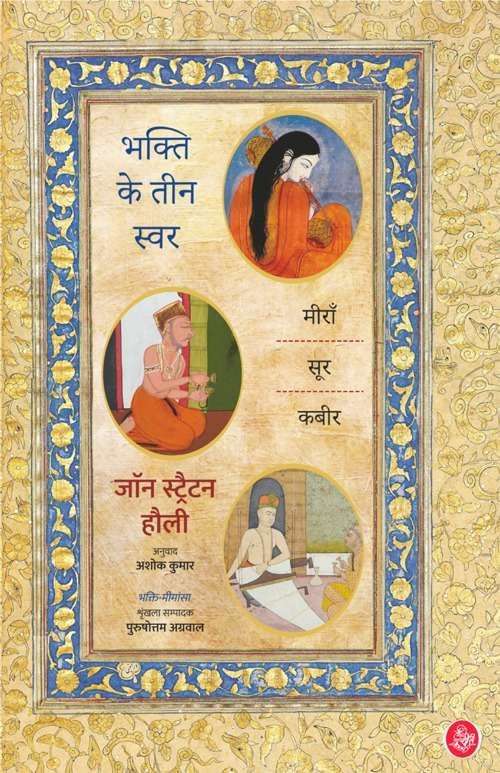 भक्ति
के तीन
स्वर
मीराँ
सूर
कबीर
जॉन स्ट्रैटन
हौली
अनुवाद
अशोक कुमार
भक्ति-मीमांसा
शृंखला सम्पादक
पुरुषोत्तम अग्रवाल